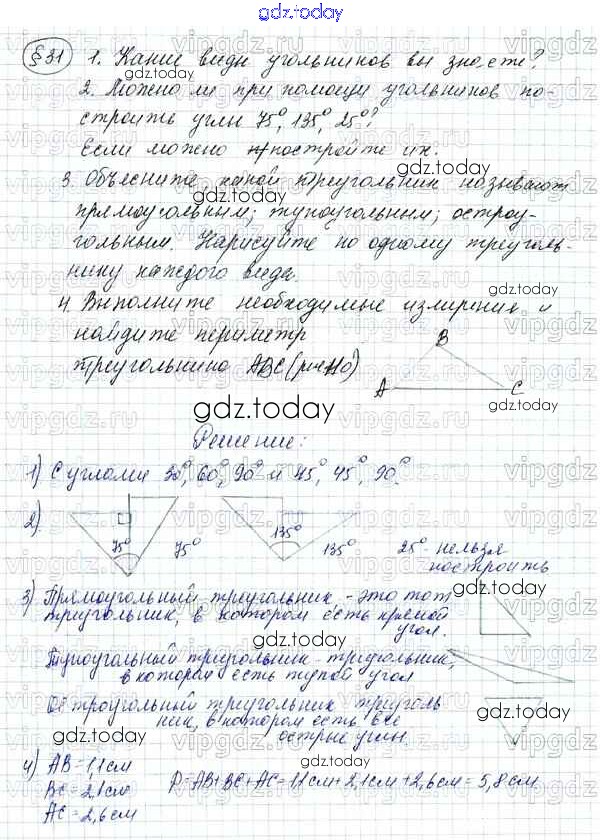 gdz.today
§ 31 1. Какие виды угольников вы знаете?
gdz.today
2. Можно ли при помощи угольников по-
строить углы 75°, 135°, 25°?
Если можно постройте их.
gdz.today
3. Объясните какой треугольник называют
прямоугольным; тупоугольным; остроу-
гольным. Нарисуйте по одному треуголь-
нику каждого вида.
gdz.today
4. Выполните необходимые измерения и
найдите периметр
треугольника ABC (рис 110)
B
A C
gdz.today
gdz.today
Решение:
1) С углами 30°, 60°, 90° и 45°, 45°, 90°.
2) 75° 75° 135° 135° 25° - нельзя
построить
gdz.today
3) Прямоугольный треугольник - это тот
триугольник, в котором есть прямой
угол.
gdz.today
Тупоугольный триугольник - триугольник,
в котором есть тупой угол
Остроугольный триугольник триуголь
ник, в котором есть все
острые углы.
gdz.today
4) AB = 1,1 см
BC = 2,1 см
AC = 2,6 см
P = AB + BC + AC = 1,1 см + 2,1 см + 2,6 см = 5,8 см
gdz.today
vipgdz.ru